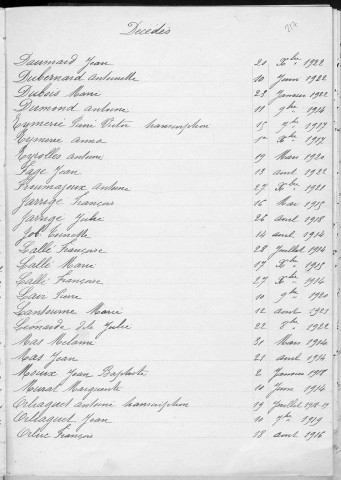 Décédés
217
Daumard Jean 20 Xbre 1922
Dubernard Antoinette 10 Juin 1922
Dubois Marie 23 Janvier 1922
Dumond Antoine 11 9bre 1914
Eymerie Pierre Victor transcription 15 7bre 1917
Eymerie Anna 1er Xbre 1917
Eyrolles Antoine 19 Mars 1920
Fage Jean 13 avril 1922
Froumajoux Antoine 27 Xbre 1920
Jarrige François 16 Mai 1915
Jarrige Julie 26 avril 1918
Job 14 avril 1914
Lallé Françoise 28 Juillet 1914
Lallé Marie 17 Xbre 1915
Lallé Françoise 27 Xbre 1914
Pierre 10 9bre 1920
Marie 12 avril 1921
Léonarde dite Julie 22 Xbre 1922
Mas Mélanie 31 Mars 1914
Mas Jean 21 avril 1914
Jean Baptiste 2 Janvier 1918
Murat Marguerite 10 Juin 1914
Orliaguet Antoine transcription 19 Juillet
Orliaguet Jean 10 7bre 1919
Orluc François 18 avril 1916